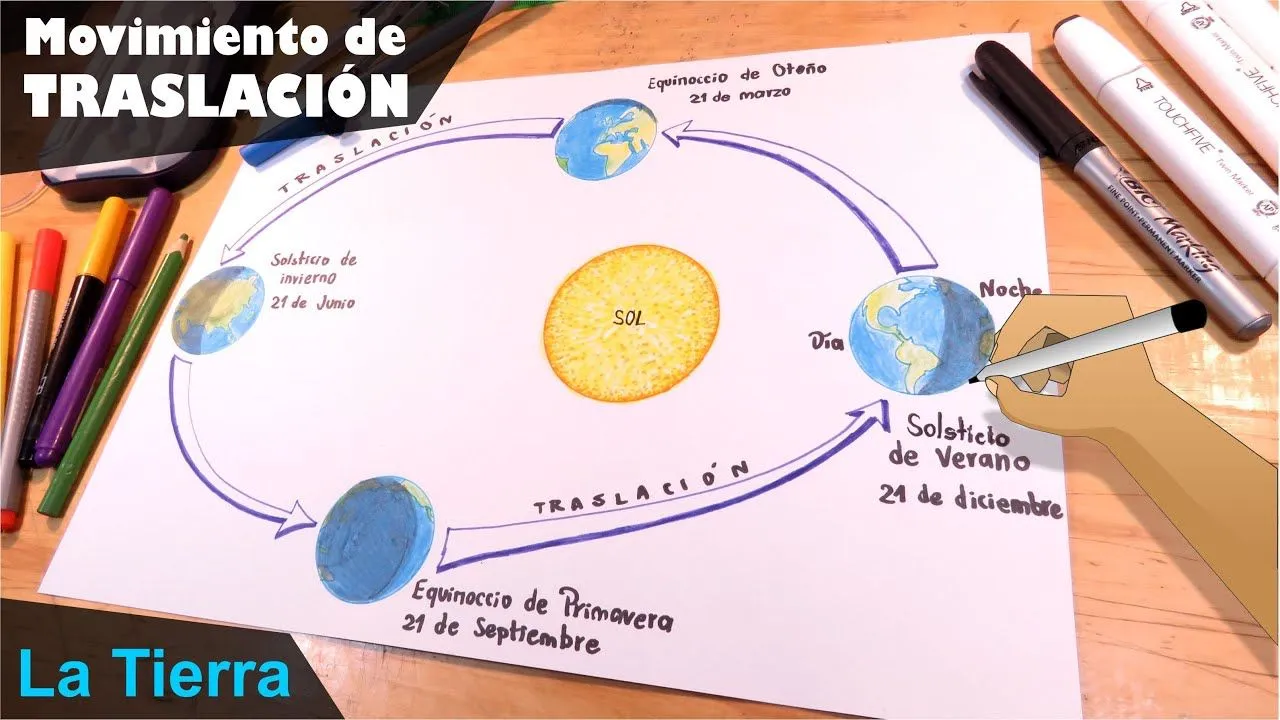 Movimiento de
TRASLACIÓN
Equinoccio de Otoño
21 de marzo
TRASLACIÓN
Solsticio de
invierno
21 de Junio
SOL
Día
Noche
Solsticio
de Verano
21 de diciembre
TRASLACIÓN
Equinoccio de Primavera
21 de Septiembre
La Tierra
BIC Marking
FINE POINT·PERMANENT MARKER
TOUCHFIVE Twin Marker
Twin Marker